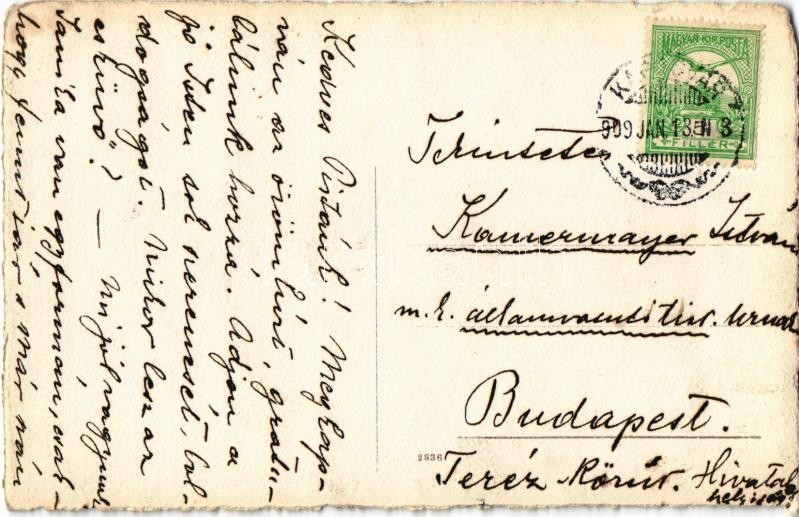 Kedves Pistánk! Megkap-
ván az örömhírt, gratu-
lálunk hozzá. Adjon a
jó Isten sok szerencsét, bol-
dogságot. Mikor lesz az
esküvő? — Mi jól vagyunk
van egyformán, csak
hogy s már
MAGYAR KIR. POSTA
FILLÉR
909 JAN 13
Tekintetes
Kamermayer István
m. k. államvasuti tiszt. urnak
Budapest.
2836
Teréz körút. Hivatal
helyiség